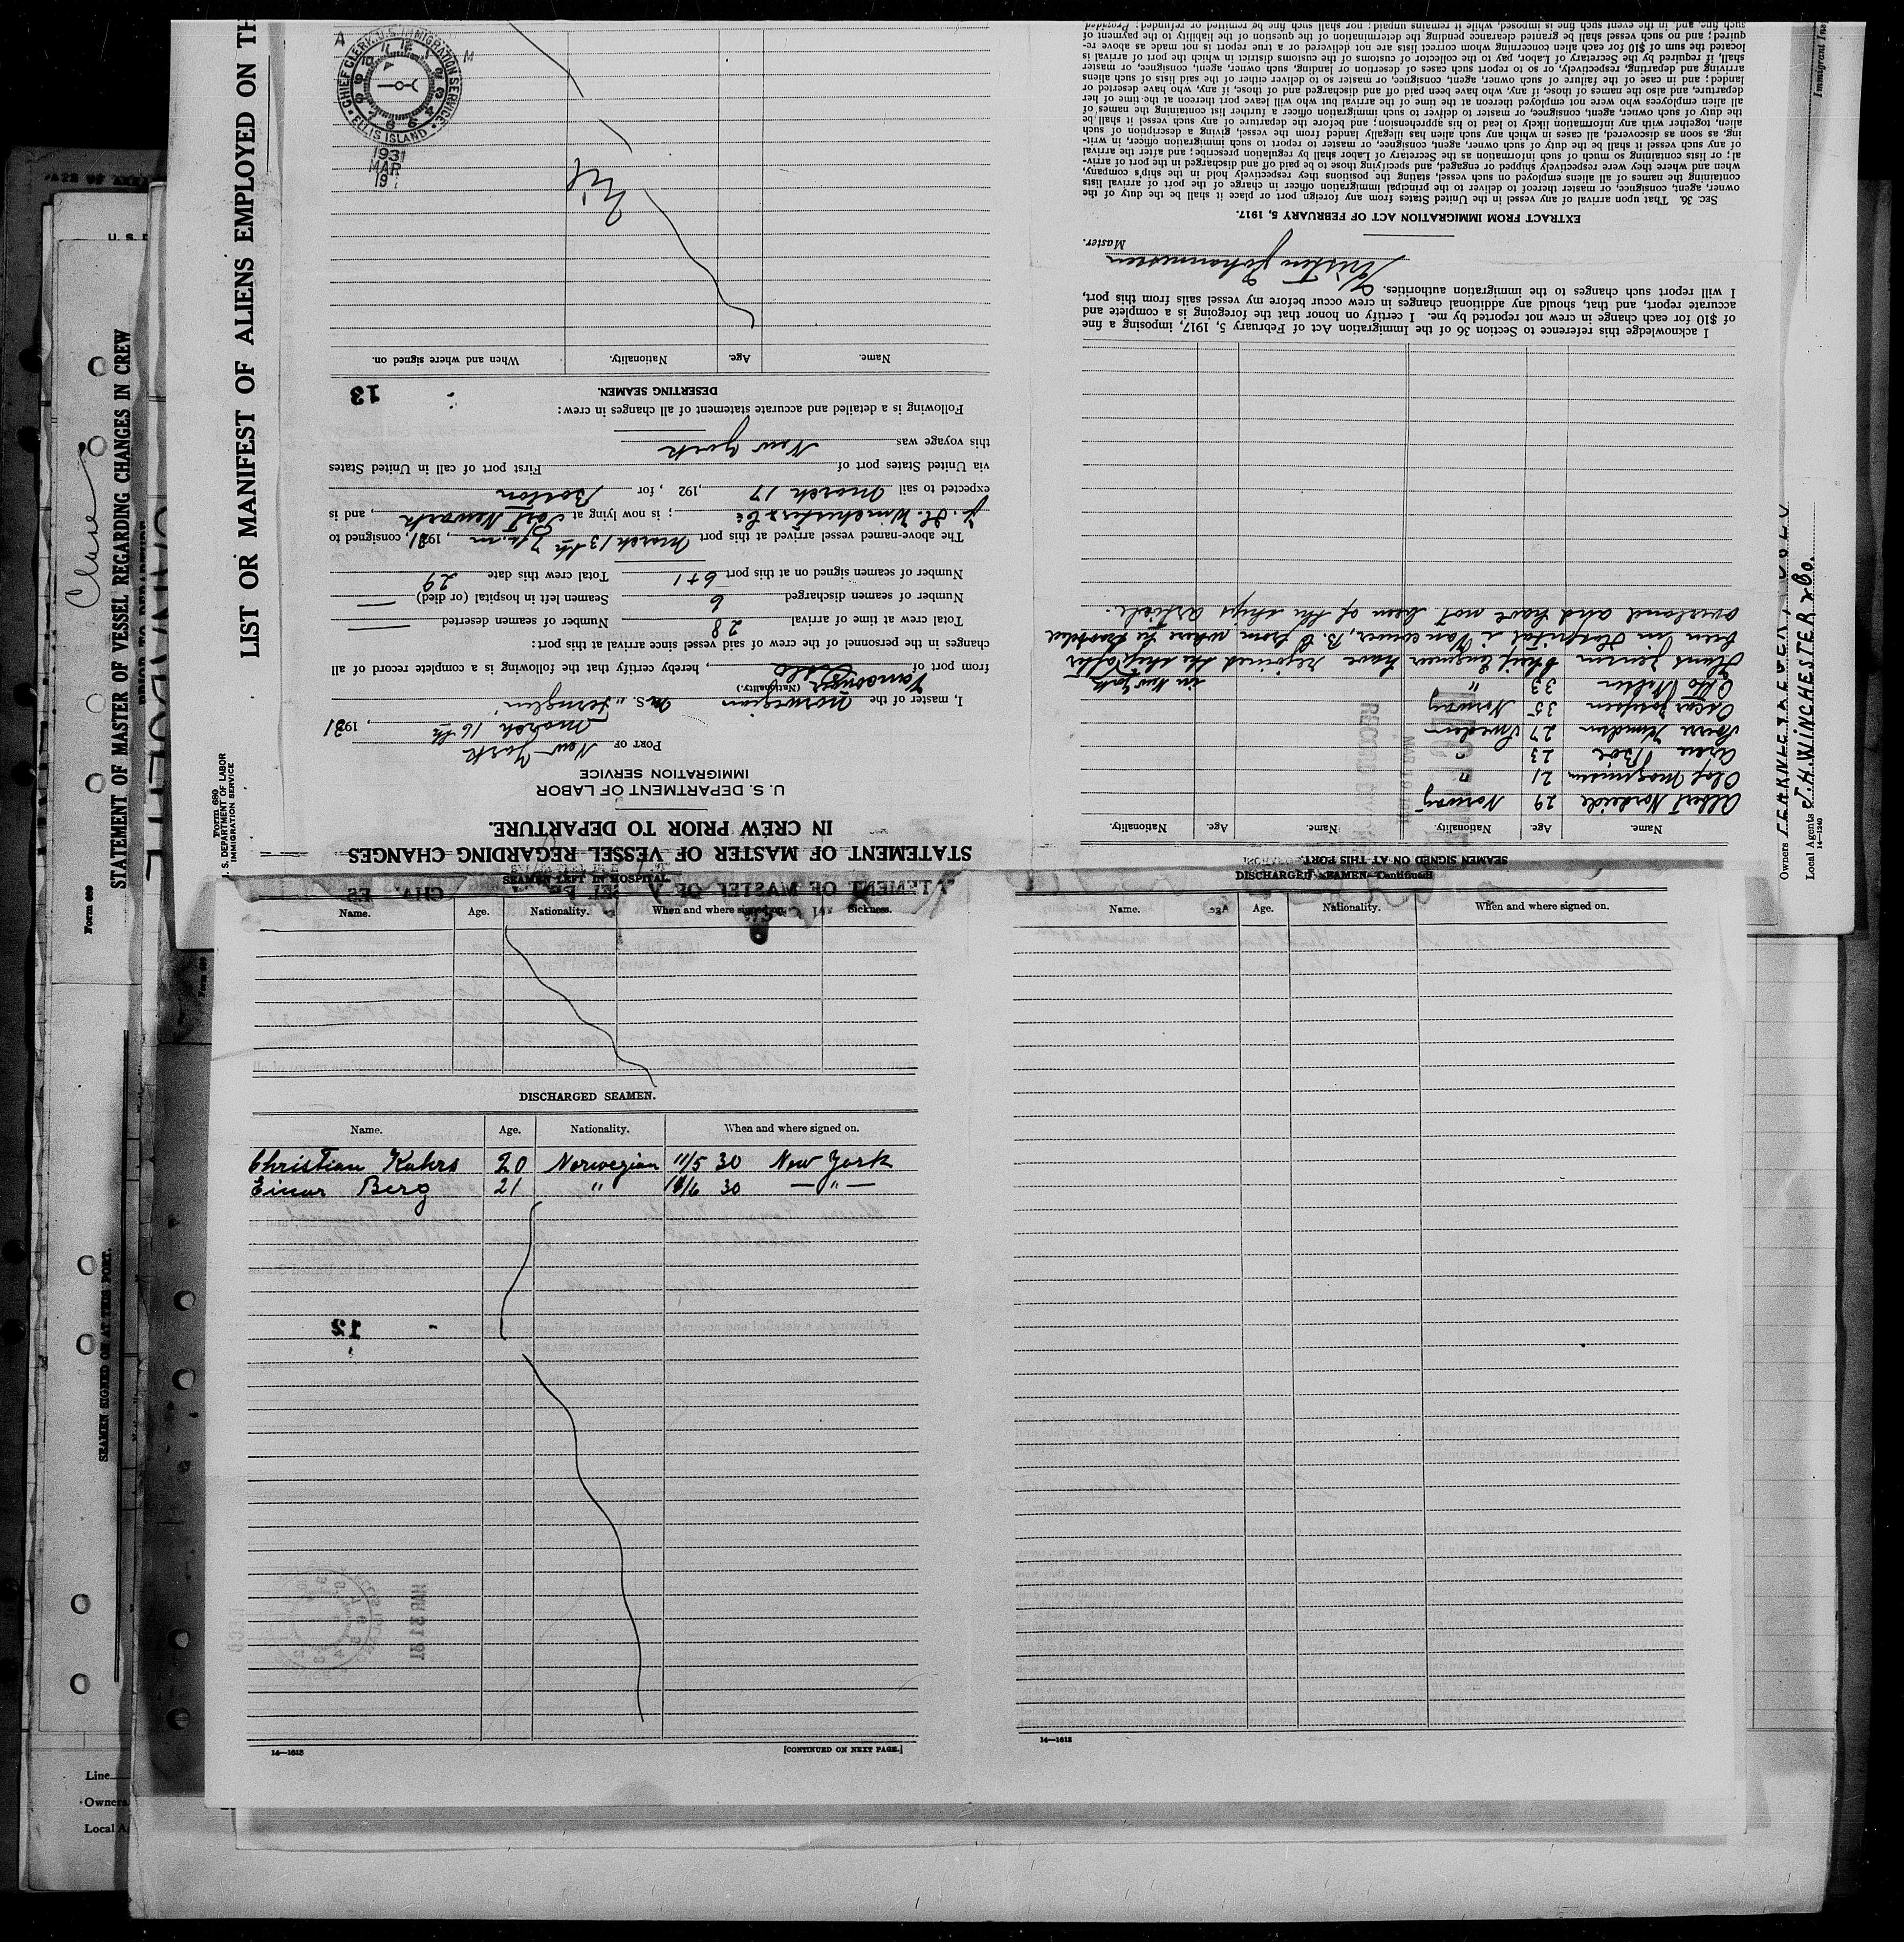 LIST OR MANIFEST OF ALIENS EMPLOYED ON TH
Form 680
U. S. DEPARTMENT OF LABOR
IMMIGRATION SERVICE
STATEMENT OF MASTER OF VESSEL REGARDING CHANGES IN CREW
PRIOR TO DEPARTURE
Form 689
SEAMEN SIGNED ON AT THIS PORT.
Line
Owners
Local A
Owners
Local Agents J. H. WINCHESTER & Co.
14-1240
STATEMENT OF MASTER OF VESSEL REGARDING CHANGES
IN CREW PRIOR TO DEPARTURE.
U. S. DEPARTMENT OF LABOR
IMMIGRATION SERVICE
PORT OF New York
March 16 th, 1931
I, master of the Norwegian M.S. "Fernglen"
(Nationality.)
from port of Oslo, hereby certify that the following is a complete record of all
changes in the personnel of the crew of said vessel since arrival at this port:
Total crew at time of arrival 28 Number of seamen deserted —
Number of seamen discharged 6 Seamen left in hospital (or died) —
Number of seamen signed on at this port 6+1 Total crew this date 29
The above-named vessel arrived at this port March 13 th 7 p.m., 1931, consigned to
J. H. Winchester & Co; is now lying at Port Newark, and is
expected to sail March 17, 192 , for Boston
via United States port of First port of call in United States
this voyage was New York
Following is a detailed and accurate statement of all changes in crew:
13
DESERTING SEAMEN.
Name. Age. Nationality. When and where signed on.
Nil
CHIEF CLERK, U.S. IMMIGRATION SERVICE
ELLIS ISLAND
1931
MAR
19
SEAMEN SIGNED ON AT THIS PORT.
Name. Age. Nationality. Name. Age. Nationality.
Albert Nordeide 29 Norway
Olaf Magnussen 21 "
Arne Böe 23 "
Sverre Knudsen 27 Sweden
Oscar Josefsen 35 Norway
Otto Nilsen 33 "
Hans Jensen Chief Engineer have rejoined the ship after in New York
been in Hospital i Vancouver, B. C from where he traveled
overland and have not been of the ships article.
I acknowledge this reference to Section 36 of the Immigration Act of February 5, 1917, imposing a fine
of $10 for each change in crew not reported by me. I certify on honor that the foregoing is a complete and
accurate report, and that, should any additional changes in crew occur before my vessel sails from this port,
I will report such changes to the immigration authorities.
Kristen Johannessen
Master.
EXTRACT FROM IMMIGRATION ACT OF FEBRUARY 5, 1917.
SEC. 36. That upon arrival of any vessel in the United States from any foreign port or place it shall be the duty of the
owner, agent, consignee, or master thereof to deliver to the principal immigration officer in charge of the port of arrival lists
containing the names of all aliens employed on such vessel, stating the positions they respectively hold in the ship's company,
when and where they were respectively shipped or engaged, and specifying those to be paid off and discharged in the port of arriv-
al; or lists containing so much of such information as the Secretary of Labor shall by regulation prescribe; and after the arrival
of any such vessel it shall be the duty of such owner, agent, consignee, or master to report to such immigration officer, in writ-
ing, as soon as discovered, all cases in which any such alien has illegally landed from the vessel, giving a description of such
alien, together with any information likely to lead to his apprehension; and before the departure of any such vessel it shall be
the duty of such owner, agent, consignee, or master to deliver to such immigration officer a further list containing the names of
all alien employees who were not employed thereon at the time of the arrival but who will leave port thereon at the time of her
departure, and also the names of those, if any, who have been paid off and discharged and of those, if any, who have deserted or
landed; and in case of the failure of such owner, agent, consignee, or master so to deliver either of the said lists of such aliens
arriving and departing, respectively, or so to report such cases of desertion or landing, such owner, agent, consignee, or master
shall, if required by the Secretary of Labor, pay to the collector of customs of the customs district in which the port of arrival is
located the sum of $10 for each alien concerning whom correct lists are not delivered or a true report is not made as above re-
quired; and no such vessel shall be granted clearance pending the determination of the question of the liability to the payment of
such fine, and in the event such fine is imposed, while it remains unpaid; nor shall such fine be remitted or refunded: Provided
SEAMEN LEFT IN HOSPITAL.
Name. Age. Nationality. When and where signed on. Sickness.
DISCHARGED SEAMEN.
Name. Age. Nationality. When and where signed on.
Christian Kahrs 20 Norwegian 11/5 30 New York
Einar Berg 21 " 11/6 30 — " —
12
14—1613
[CONTINUED ON NEXT PAGE.]
DISCHARGED SEAMEN—Continued
Name. Age. Nationality. When and where signed on.
14—1613